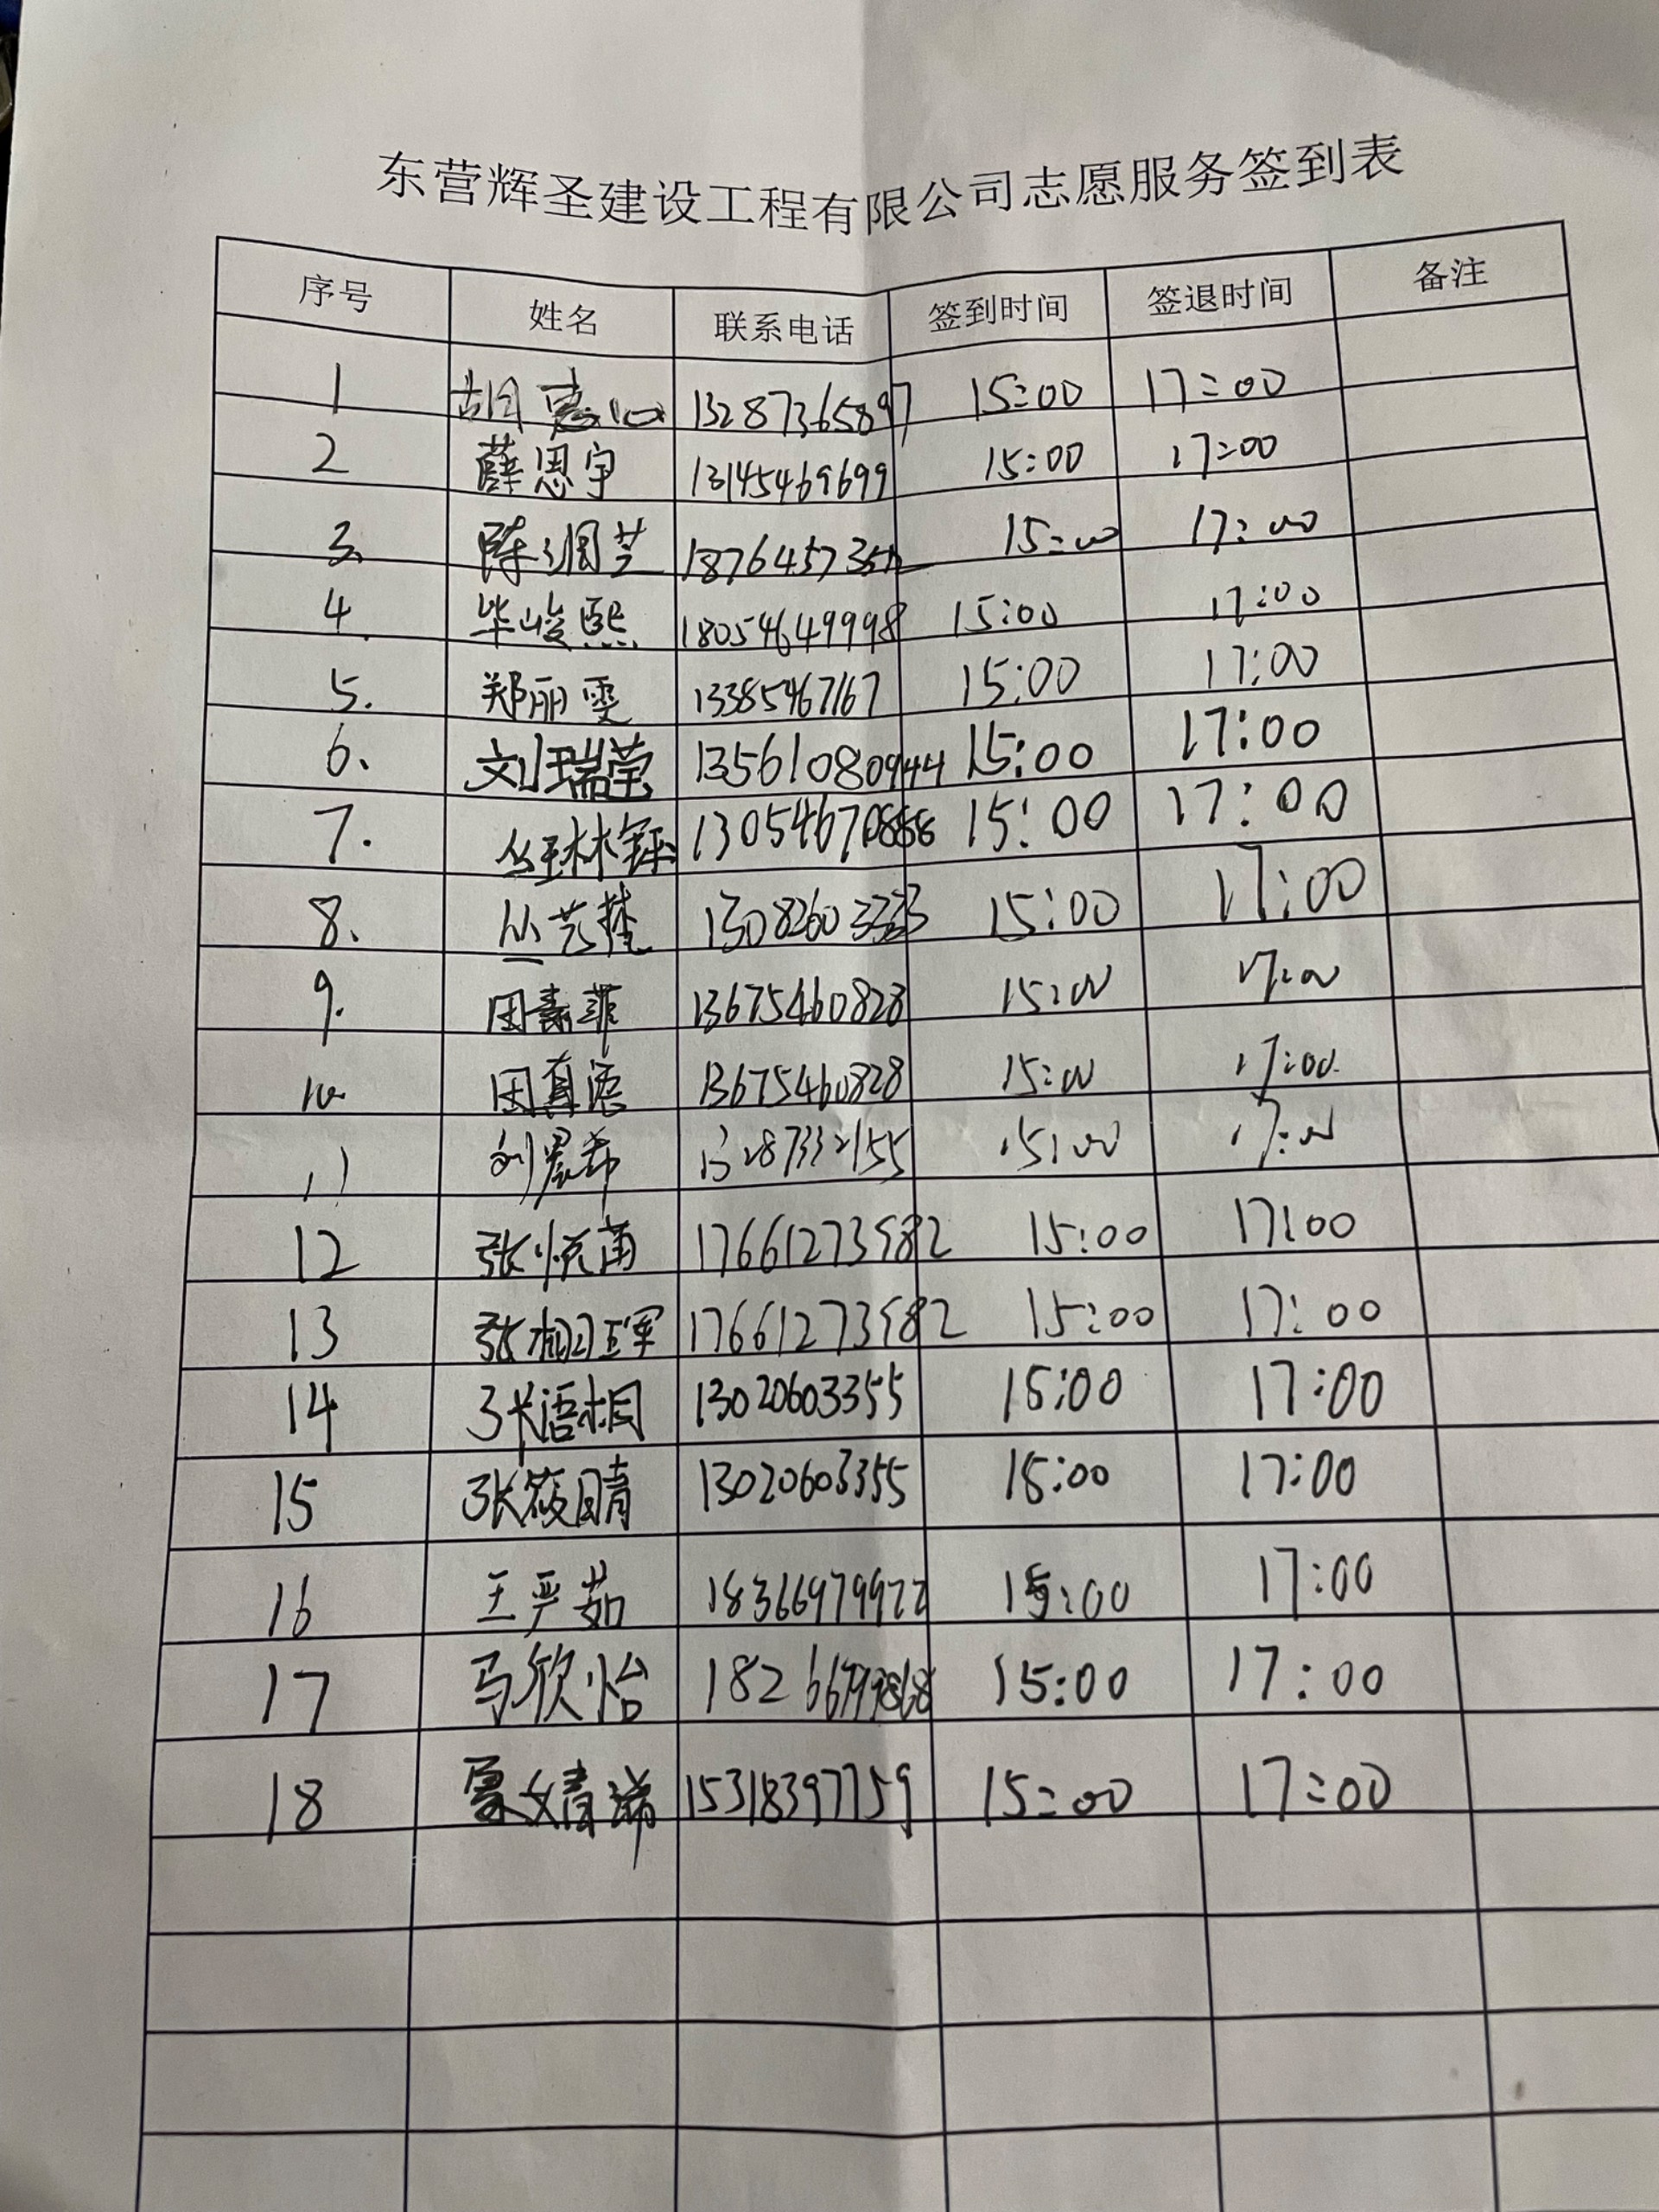 东营辉圣建设工程有限公司志愿服务签到表
序号 姓名 联系电话 签到时间 签退时间 备注
1 胡惠心 13287365897 15:00 17:00
2 薛思宇 13145469699 15:00 17:00
3. 陈润芝 15:00 17:00
4. 毕峻熙 18054649998 15:00 17:00
5. 郑丽雯 13385467167 15:00 17:00
6. 刘瑞莹 13561080944 15:00 17:00
7. 丛琳铄 13054670868 15:00 17:00
8. 丛艺楚 13082603333 15:00 17:00
9. 田嘉菲 13675460828 15:00 17:00
10. 田真语 13675460828 15:00 17:00
11 刘晨希 13287332155 15:00 17:00
12 张悦菡 17661273982 15:00 17:00
13 张桐珲 17661273982 15:00 17:00
14 张语桐 13020603355 15:00 17:00
15 张筱晴 13020603355 15:00 17:00
16 王严茹 18366979972 15:00 17:00
17 马欣怡 15:00 17:00
18 15318397759 15:00 17:00